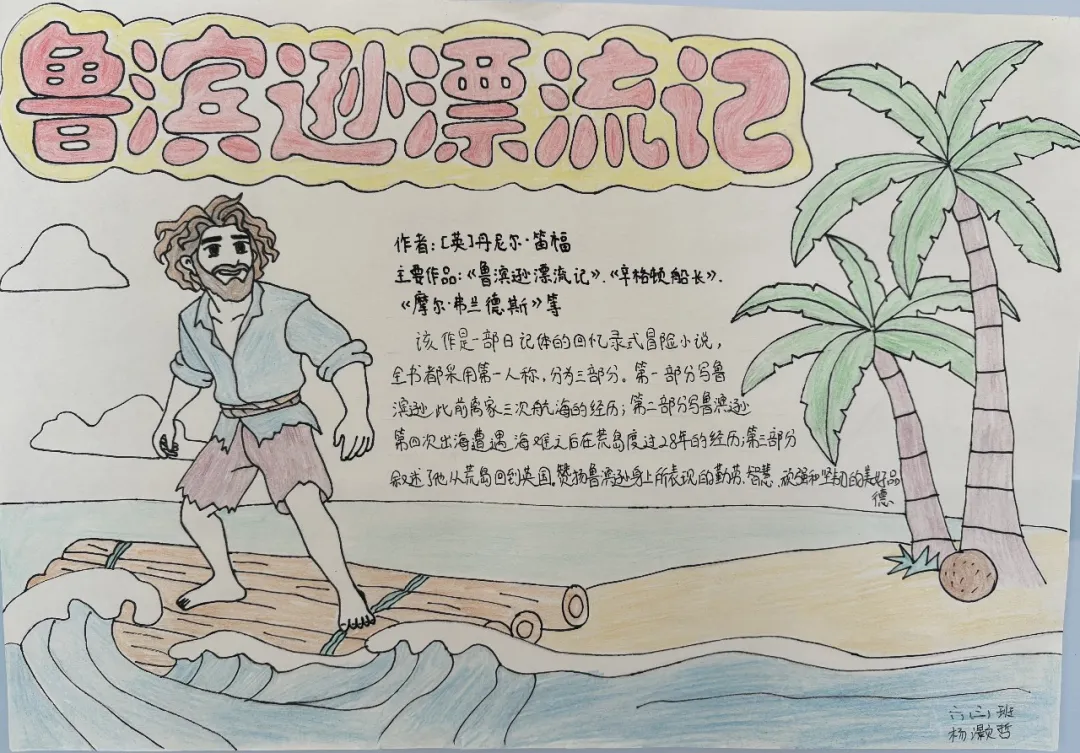 鲁滨逊漂流记
作者:[英]丹尼尔·笛福
主要作品:《鲁滨逊漂流记》.《辛格顿船长》.
《摩尔·弗兰德斯》等
该作是一部日记体的回忆录式冒险小说,
全书都采用第一人称,分为三部分。第一部分写鲁
滨逊此前离家三次航海的经历;第二部分写鲁滨逊
第四次出海遭遇海难之后在荒岛度过28年的经历;第三部分
叙述了他从荒岛回到英国。赞扬鲁滨逊身上所表现的勤劳.智慧.顽强和坚韧的美好品
德
六(三)班
杨灏哲